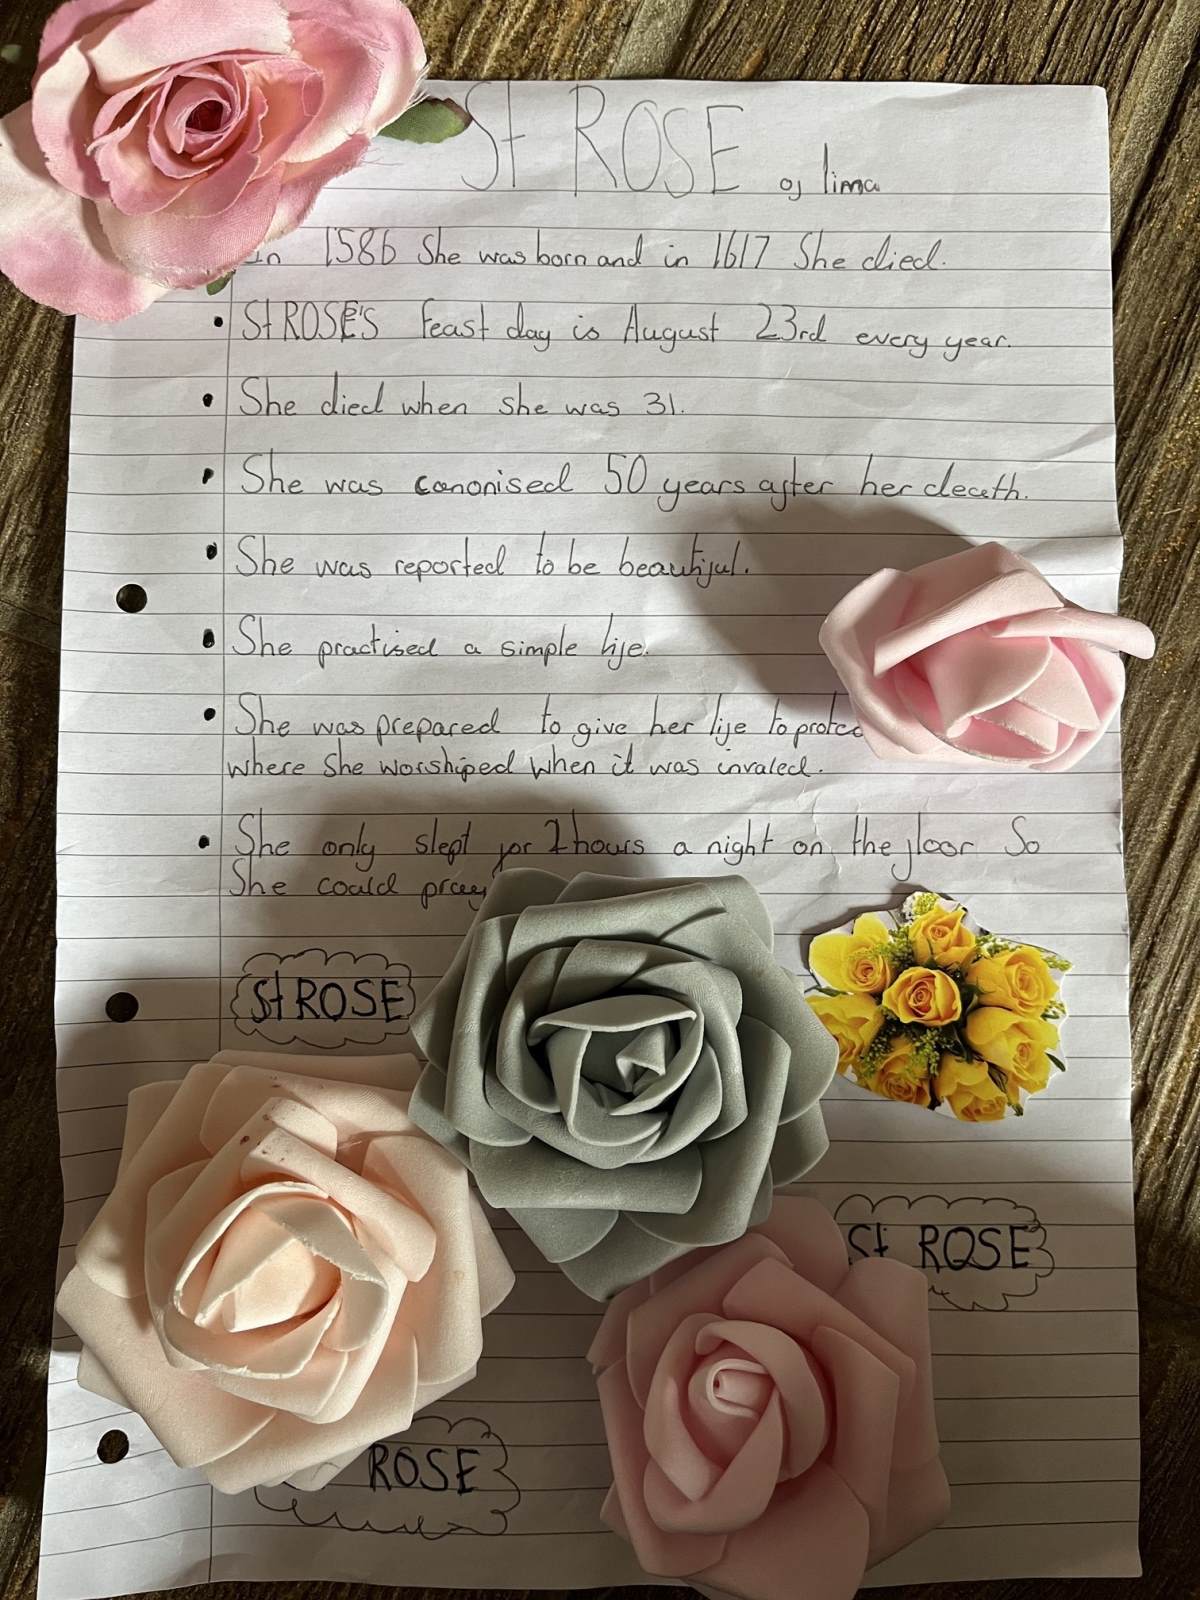 St ROSE of lima
In 1586 She was born and in 1617 She died.
• St ROSE'S feast day is August 23rd every year.
• She died when she was 31.
• She was canonised 50 years after her death.
• She was reported to be beautiful.
• She practised a simple life.
• She was prepared to give her life to protec
where She worshiped when it was invaled.
• She only slept for 2 hours a night on the floor So
She could pray
St ROSE
St ROSE
ROSE